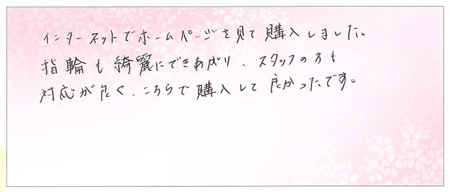 インターネットでホームページを見て購入しました。
指輪も綺麗にできあがり、スタッフの方も
対応が良く、こちらで購入して良かったです。